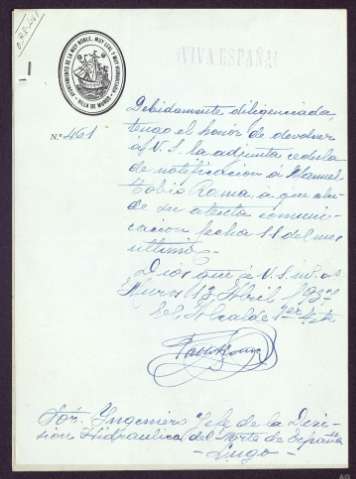 ¡VIVA ESPAÑA!
AYUNTAMIENTO DE LA MUY NOBLE, MUY LEAL Y MUY HUMANITARIA VILLA DE MUROS
N.º 461
Debidamente diligenciada
tengo el honor de devolver
á V.S. la adjunta cedula
de notificacion á Manuel
Tobio Roma, á que alu-
de su atenta comuni-
cacion fecha 11 del mes
ultimo.-
Dios gue á V.S. m. as
Muros 13 Abril 1937
El Alcalde
Sor. Ingeniero Jefe de la Divi-
sion Hidraulica del Norte de España
-Lugo-